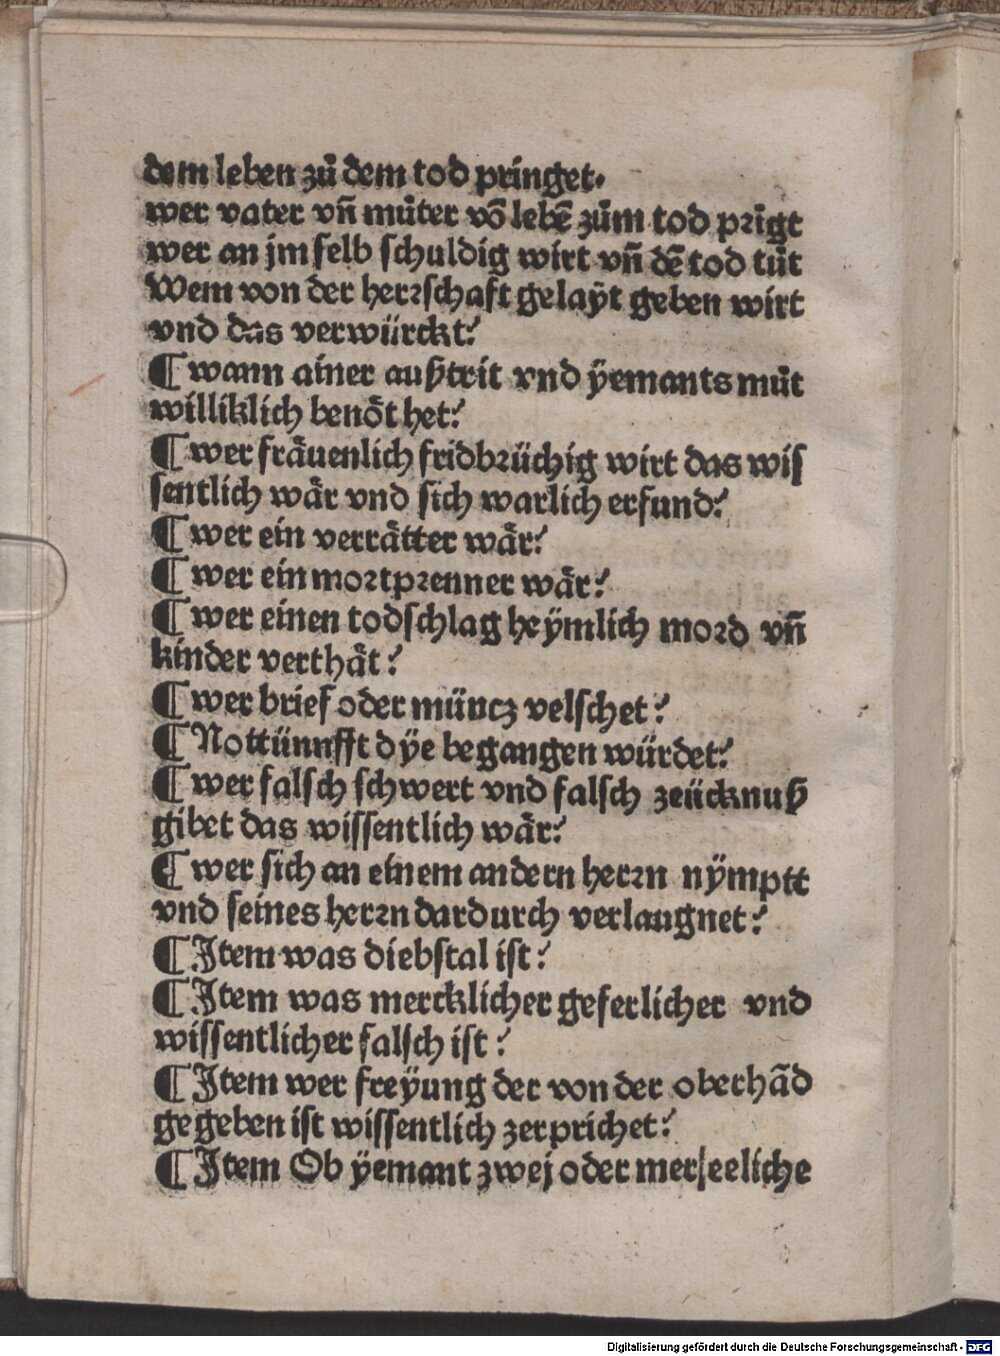 dem leben zů dem tod pringet.
wer vater vn̄ můter vō lebē zům tod prīgt
wer an jm selb schuldig wirt vn̄ dē tod tůt
Wem von der herrschaft gelaÿt geben wirt
vnd das verwürckt?
¶ wann ainer außtrit vnd ÿemants můt
williklich benȯ̈t het?
¶ wer fräuenlich fridbrüchig wirt das wis
sentlich wär vnd sich warlich erfund?
¶ wer ein verrätter wär?
¶ wer ein mortprenner wär?
¶ wer einen todschlag heÿmlich mord vn̄
kinder verthät?
¶ wer brief oder müncz velschet?
¶ Nottünnfft dÿe begangen würdet?
¶ wer falsch schwert vnd falsch zeücknuß
gibet das wissentlich wär?
¶ wer sich an einem andern herrn nÿmptt
vnd seines herrn dardurch verlaugnet?
¶ Item was diebstal ist?
¶ Item was mercklicher geferlicher vnd
wissentlicher falsch ist?
¶ Item wer freÿung der von der oberhād
gegeben ist wissentlich zerprichet?
¶ Item Ob ÿemant zwej oder mer eeliche
Digitalisierung gefördert durch die Deutsche Forschungsgemeinschaft - DFG